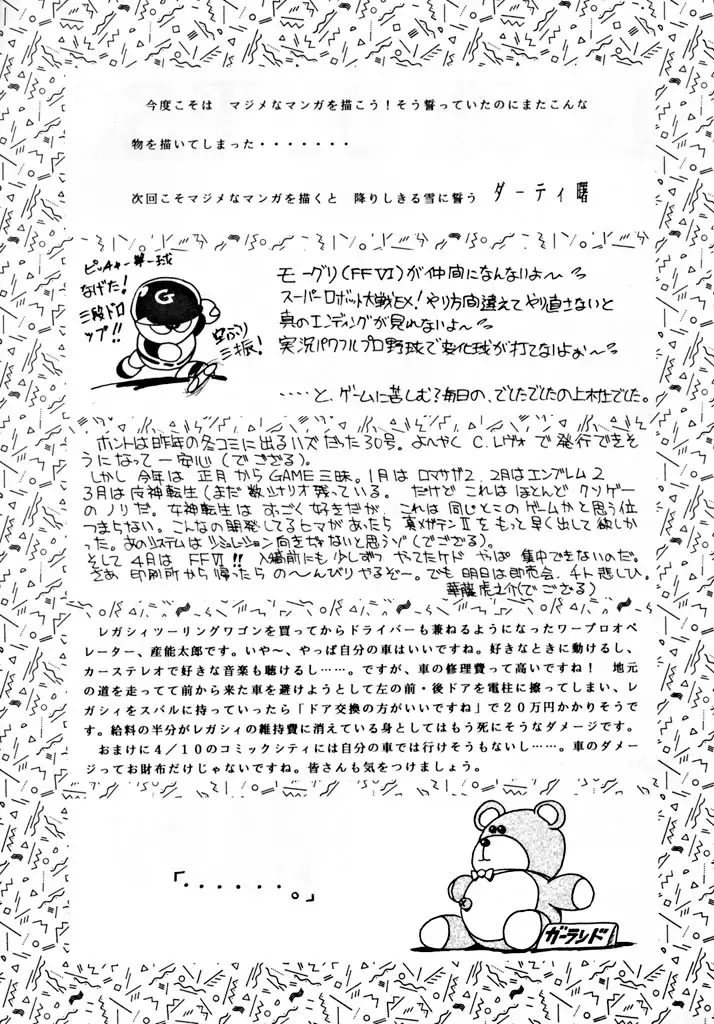 今度こそは マジメなマンガを描こう!そう誓っていたのにまたこんな
物を描いてしまった・・・・・・・
次回こそマジメなマンガを描くと 降りしきる雪に誓う ダーティ曙
ピッチャー第一球
なげた!
三段ドロ
ップ!!
G
空ぶり
三振!
モーグリ(FFⅥ)が仲間になんないよ〜
スーパーロボット大戦EX!やり方間違えてやり直さないと
真のエンディングが見れないよ〜
実況パワフルプロ野球で変化球が打てないよぉ〜
・・・・と、ゲームに苦しむ毎日の、でしたでしたの上木でした。
ホントは昨年の冬コミに出るハズだった30号。よーやく C.レヴォ で発行できそ
うになって一安心(でござる)。
しかし 今年は 正月から GAME三昧。1月は ロマサガ2、2月はエンブレム2
3月は女神転生(まだ数シナリオ残っている。 だけど これは ほとんど クソゲー
のノリだ。女神転生は すごく好きだが、これは同じとこのゲームかと思う位
つまらない。こんなの開発してるヒマがあったら 真メガテンⅡをもっと早く出して欲しか
った。あのシステムは シミュレーション向きぢゃないと思うゾ(でござる)。
そして 4月は FFⅥ!! 入稿前にも少しずつ やってたケド やっぱ 集中できないのだ。
さあ 印刷所から 帰ったら の〜んびりやるぞー。でも 明日は即売会。チト悲しひ。
華龍虎之介(でござる)
レガシィツーリングワゴンを買ってからドライバーも兼ねるようになったワープロオペ
レーター、産能太郎です。いや〜、やっぱ自分の車はいいですね。好きなときに動けるし、
カーステレオで好きな音楽も聴けるし……。ですが、車の修理費って高いですね! 地元
の道を走ってて前から来た車を避けようとして左の前・後ドアを電柱に擦ってしまい、レ
ガシィをスバルに持っていったら「ドア交換の方がいいですね」で20万円かかりそうで
す。給料の半分がレガシィの維持費に消えている身としてはもう死にそうなダメージです。
おまけに4/10のコミックシティには自分の車では行けそうもないし……。車のダメー
ジってお財布だけじゃないですね。皆さんも気をつけましょう。
「・・・・・・。」
ガーランド